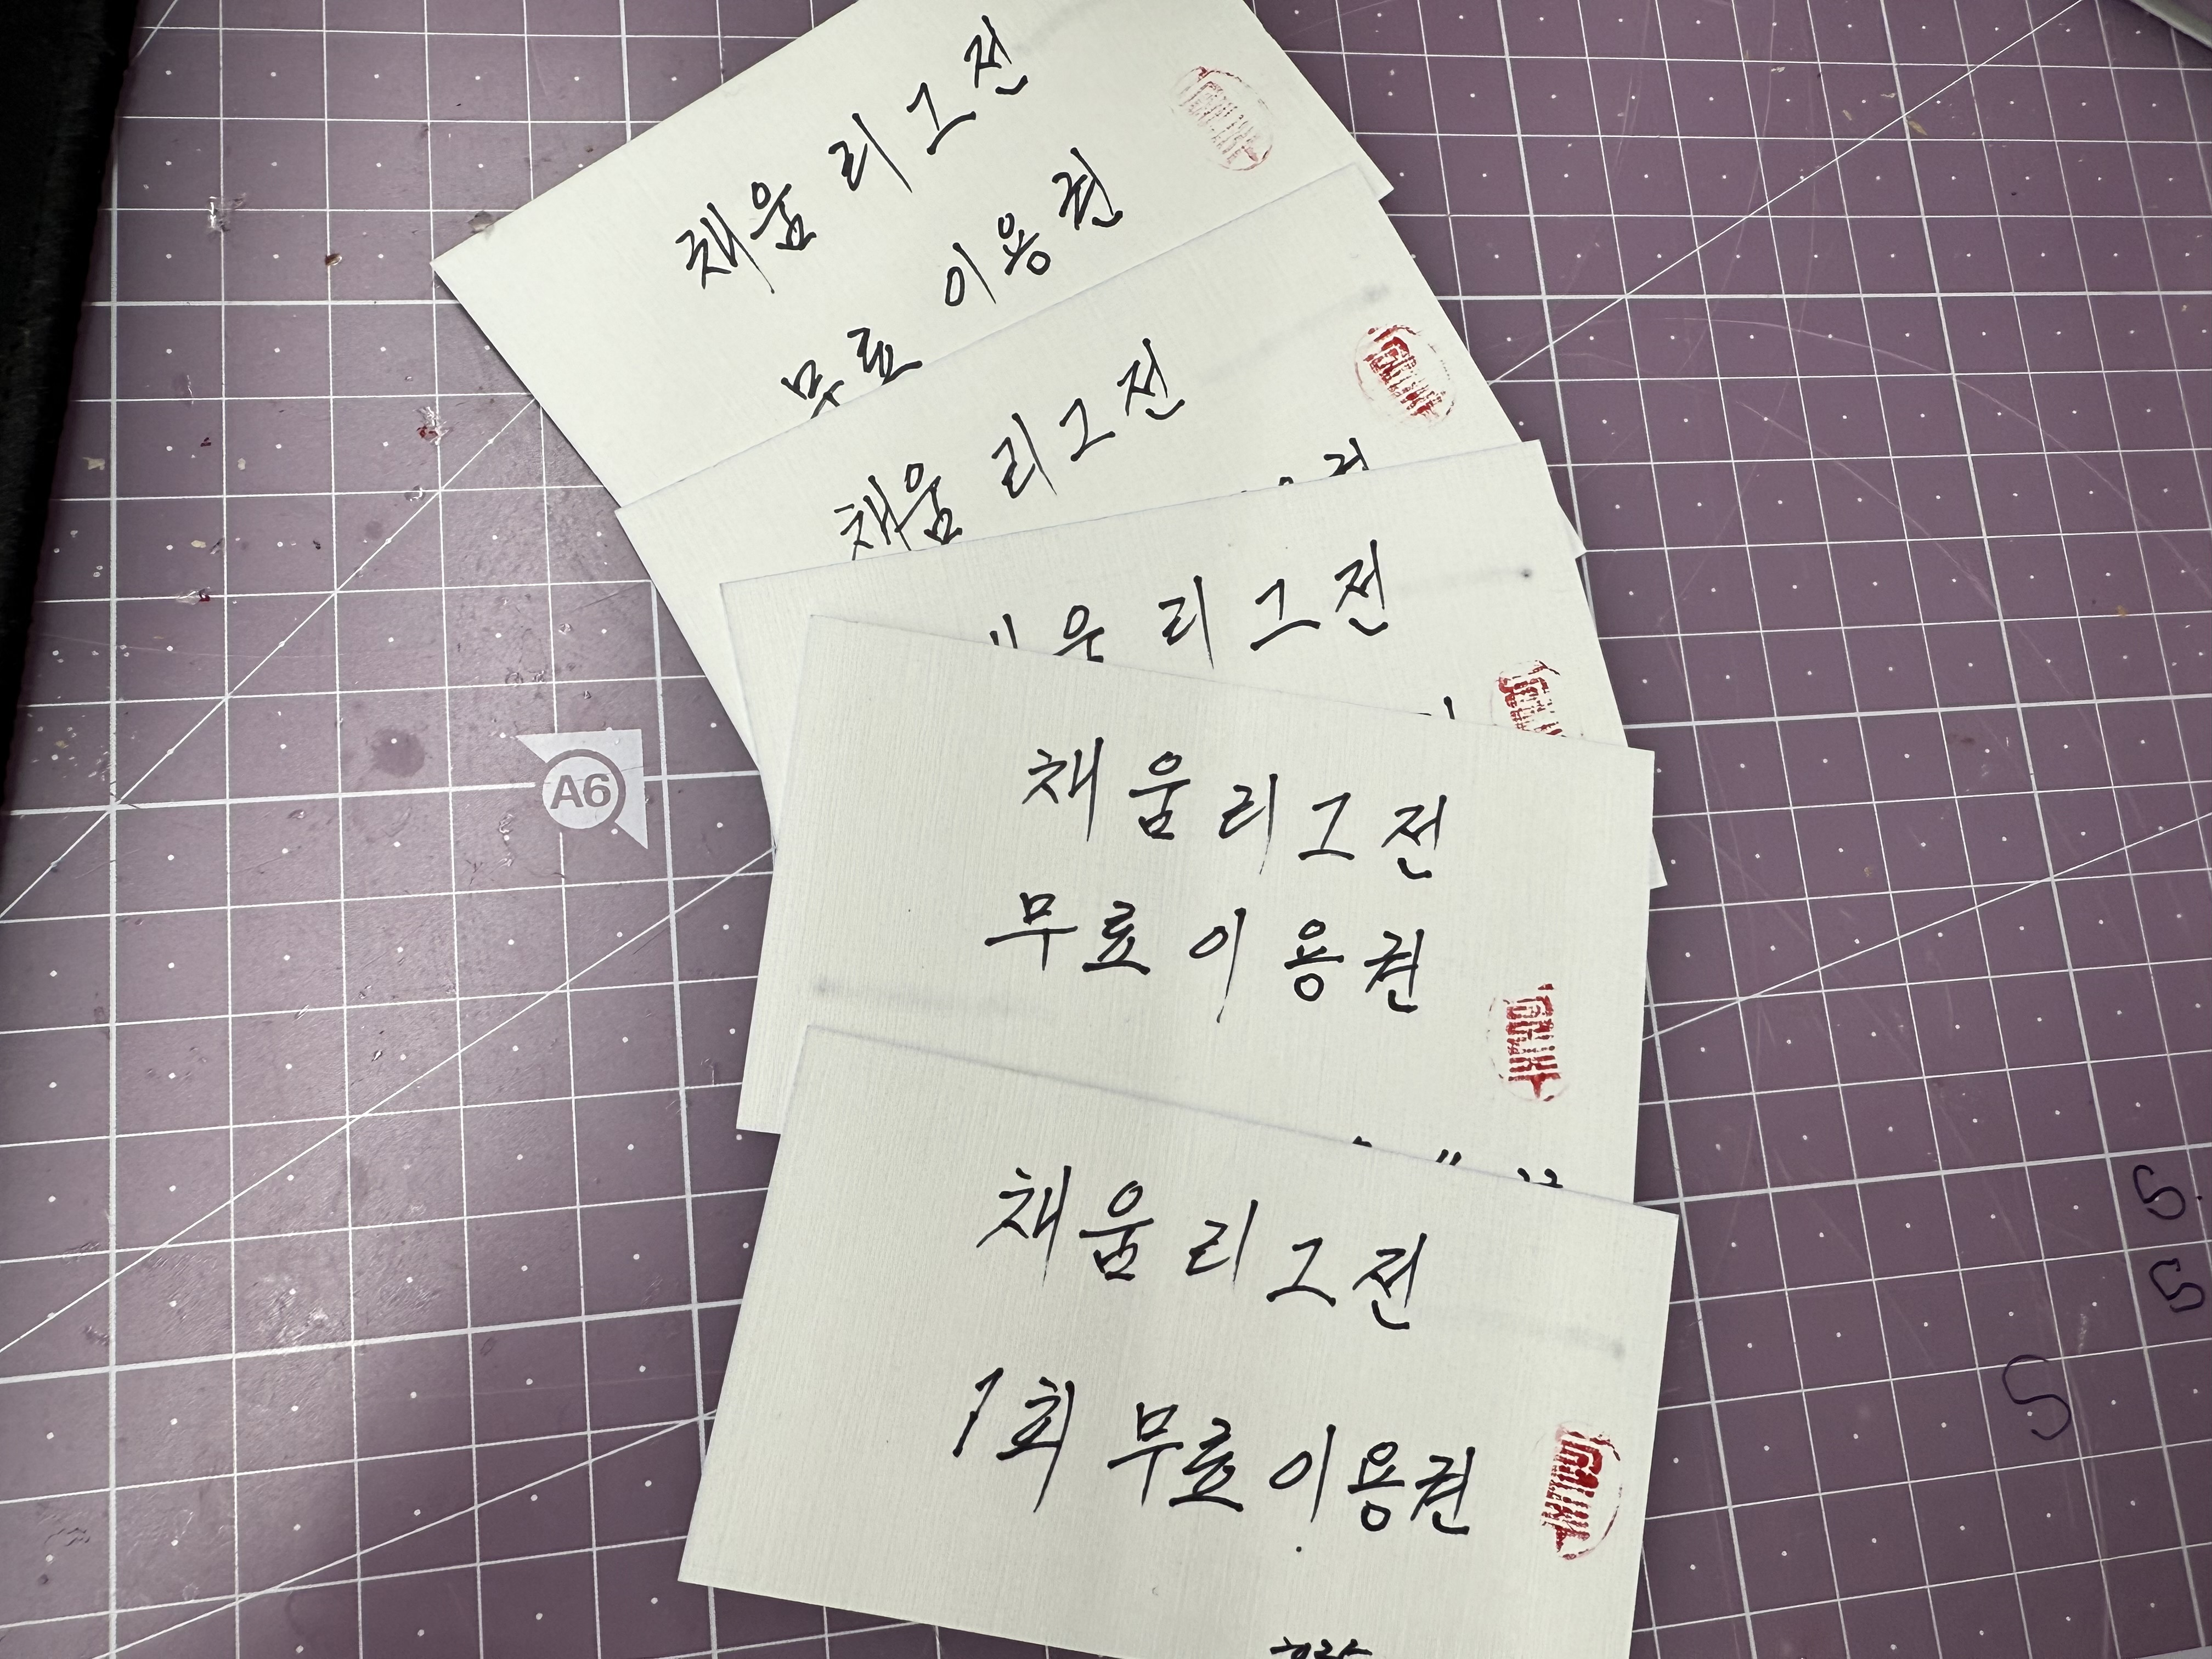 채움 리그전
무료 이용권
채움 리그전
리그전
채움 리그전
무료 이용권
채움 리그전
1회 무료 이용권
A6
S
S
S